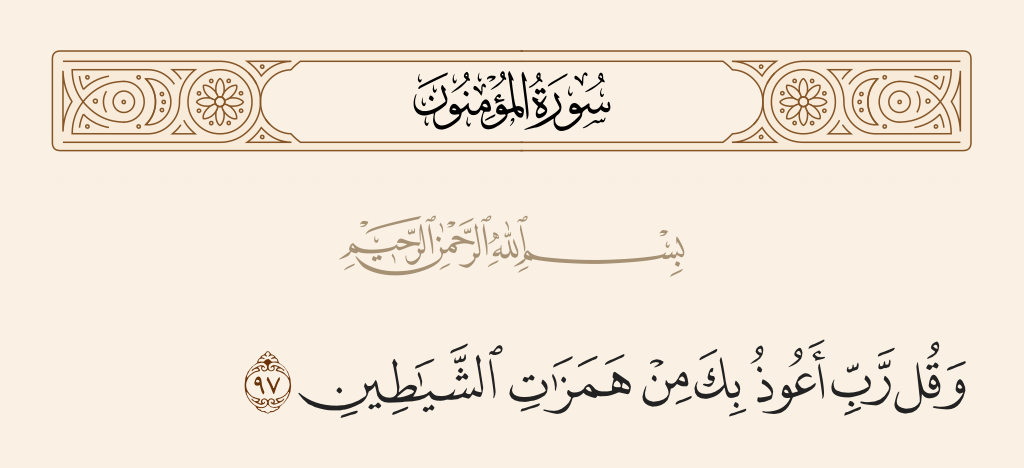 سُورَةُ الْمُؤْمِنُونَ
بِسْمِ ٱللَّهِ ٱلرَّحْمَٰنِ ٱلرَّحِيمِ
وَقُل رَّبِّ أَعُوذُ بِكَ مِنْ هَمَزَٰتِ ٱلشَّيَٰطِينِ ٩٧